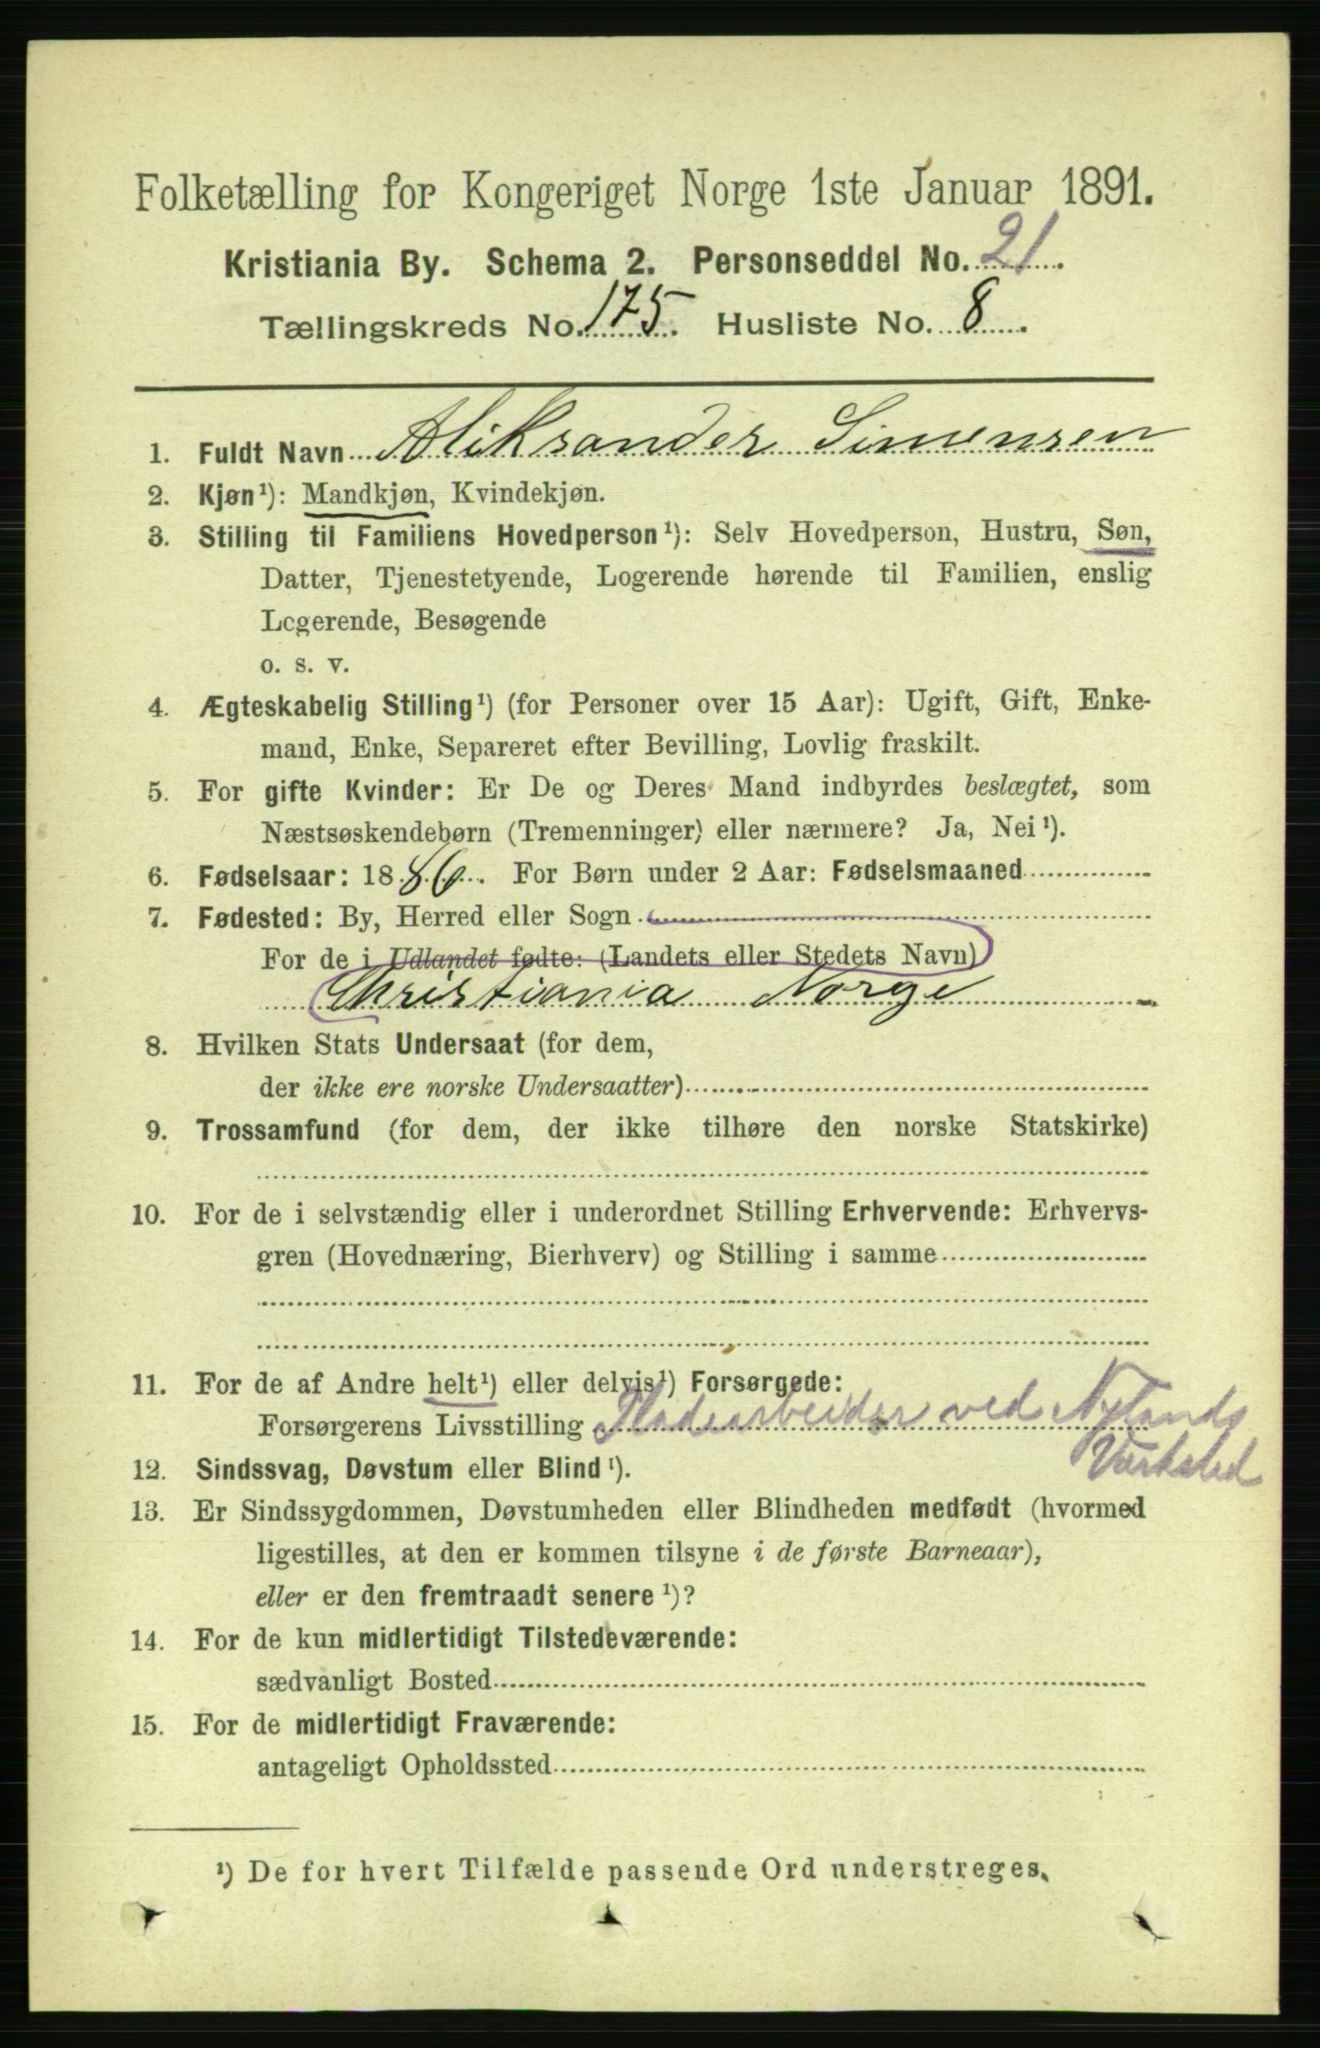 Folketælling for Kongeriget Norge 1ste Januar 1891.
Kristiania By. Schema 2. Personseddel No. 21.
Tællingskreds No. 175. Husliste No. 8.
1. Fuldt Navn Aliksander Simensen
2. Kjøn¹): Mandkjøn, Kvindekjøn.
3. Stilling til Familiens Hovedperson¹): Selv Hovedperson, Hustru, Søn,
Datter, Tjenestetyende, Logerende hørende til Familien, enslig
Logerende, Besøgende
o. s. v.
4. Ægteskabelig Stilling¹) (for Personer over 15 Aar): Ugift, Gift, Enke-
mand, Enke, Separeret efter Bevilling, Lovlig fraskilt.
5. For gifte Kvinder: Er De og Deres Mand indbyrdes beslægtet, som
Næstsøskendebørn (Tremenninger) eller nærmere? Ja, Nei¹).
6. Fødselsaar: 1886. For Børn under 2 Aar: Fødselsmaaned
7. Fødested: By, Herred eller Sogn
For de i Udlandet fødte: (Landets eller Stedets Navn)
Christiania Norge
8. Hvilken Stats Undersaat (for dem,
der ikke ere norske Undersaatter)
9. Trossamfund (for dem, der ikke tilhøre den norske Statskirke)
10. For de i selvstændig eller i underordnet Stilling Erhvervende: Erhvervs-
gren (Hovednæring, Bierhverv) og Stilling i samme
11. For de af Andre helt¹) eller delvis¹) Forsørgede:
Forsørgerens Livsstilling Pladearbeider ved Nylands
Værksted
12. Sindssvag, Døvstum eller Blind¹).
13. Er Sindssygdommen, Døvstumheden eller Blindheden medfødt (hvormed
ligestilles, at den er kommen tilsyne i de første Barneaar),
eller er den fremtraadt senere¹)?
14. For de kun midlertidigt Tilstedeværende:
sædvanligt Bosted
15. For de midlertidigt Fraværende:
antageligt Opholdssted
¹) De for hvert Tilfælde passende Ord understreges.